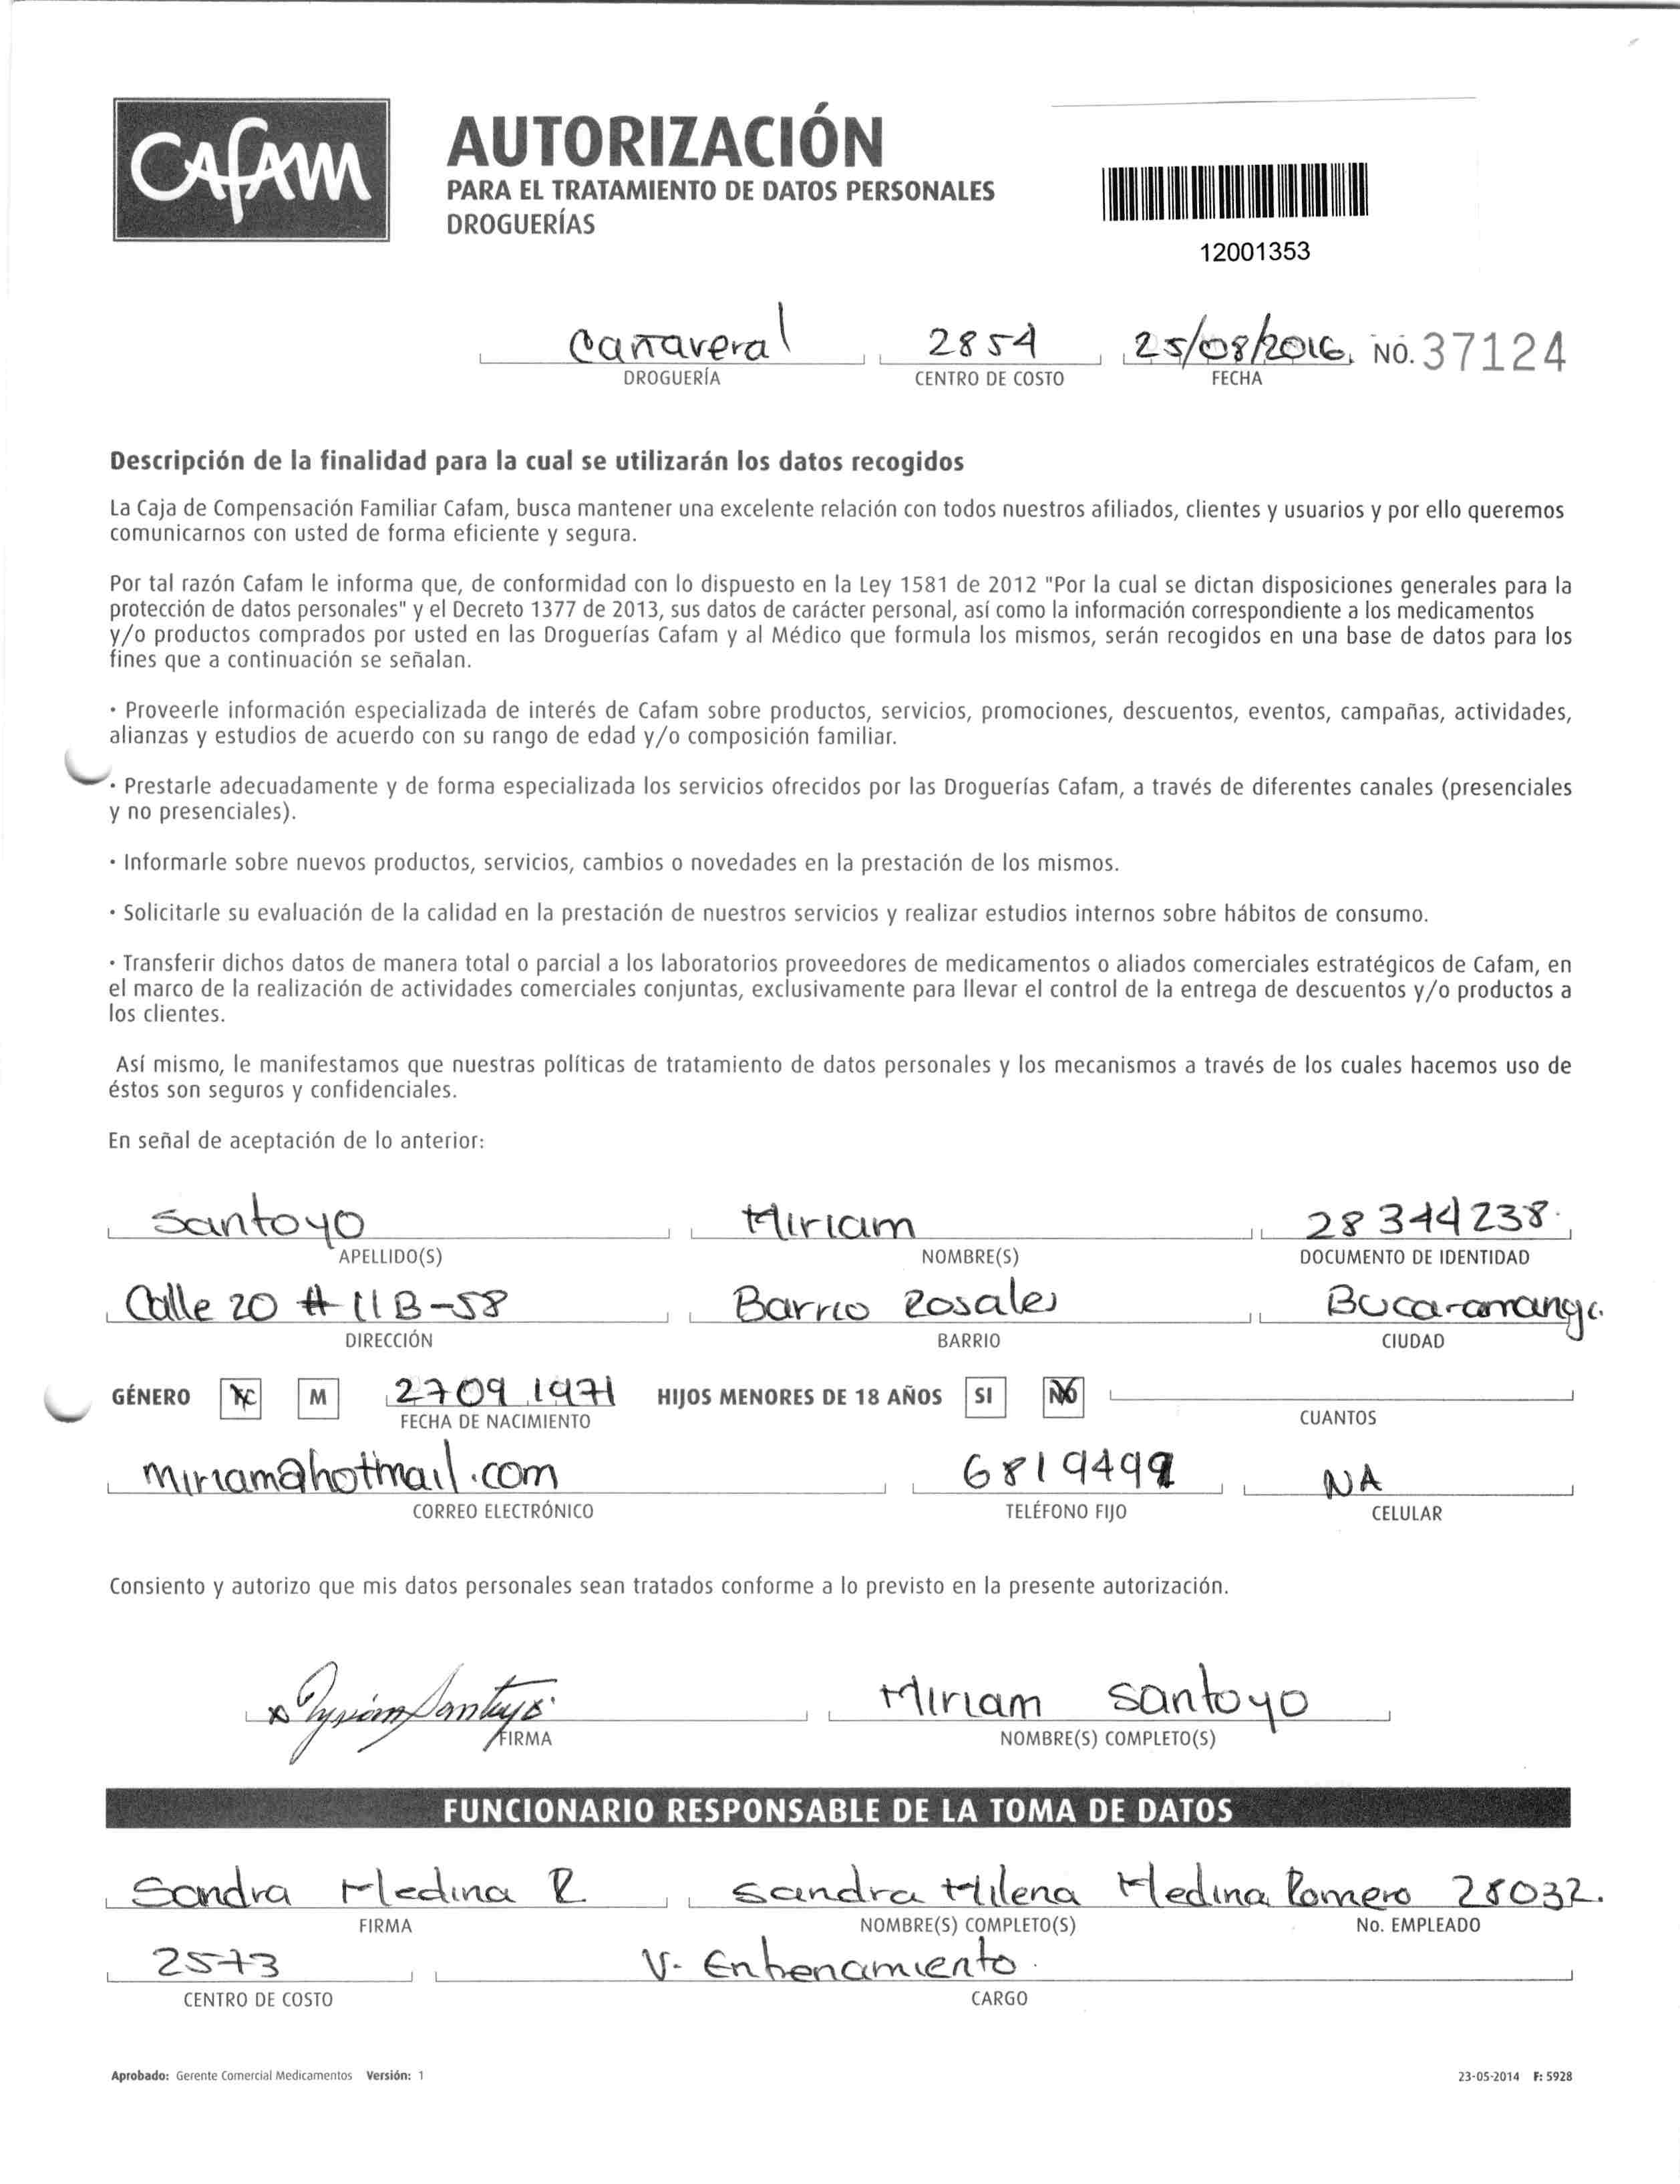 CAFAM
AUTORIZACIÓN
PARA EL TRATAMIENTO DE DATOS PERSONALES
DROGUERÍAS
12001353
Cañaveral 2854 25/08/2016. NO. 37124
DROGUERÍA CENTRO DE COSTO FECHA
Descripción de la finalidad para la cual se utilizarán los datos recogidos
La Caja de Compensación Familiar Cafam, busca mantener una excelente relación con todos nuestros afiliados, clientes y usuarios y por ello queremos
comunicarnos con usted de forma eficiente y segura.
Por tal razón Cafam le informa que, de conformidad con lo dispuesto en la Ley 1581 de 2012 "Por la cual se dictan disposiciones generales para la
protección de datos personales" y el Decreto 1377 de 2013, sus datos de carácter personal, así como la información correspondiente a los medicamentos
y/o productos comprados por usted en las Droguerías Cafam y al Médico que formula los mismos, serán recogidos en una base de datos para los
fines que a continuación se señalan.
· Proveerle información especializada de interés de Cafam sobre productos, servicios, promociones, descuentos, eventos, campañas, actividades,
alianzas y estudios de acuerdo con su rango de edad y/o composición familiar.
· Prestarle adecuadamente y de forma especializada los servicios ofrecidos por las Droguerías Cafam, a través de diferentes canales (presenciales
y no presenciales).
· Informarle sobre nuevos productos, servicios, cambios o novedades en la prestación de los mismos.
· Solicitarle su evaluación de la calidad en la prestación de nuestros servicios y realizar estudios internos sobre hábitos de consumo.
· Transferir dichos datos de manera total o parcial a los laboratorios proveedores de medicamentos o aliados comerciales estratégicos de Cafam, en
el marco de la realización de actividades comerciales conjuntas, exclusivamente para llevar el control de la entrega de descuentos y/o productos a
los clientes.
Así mismo, le manifestamos que nuestras políticas de tratamiento de datos personales y los mecanismos a través de los cuales hacemos uso de
éstos son seguros y confidenciales.
En señal de aceptación de lo anterior:
Santoyo Miriam 28344238.
APELLIDO(S) NOMBRE(S) DOCUMENTO DE IDENTIDAD
Calle 20 # 11B-58 Barrio Rosales Bucaramanga
DIRECCIÓN BARRIO CIUDAD
GÉNERO M 2709 1971 HIJOS MENORES DE 18 AÑOS SI NO
FECHA DE NACIMIENTO CUANTOS
miriam@hotmail.com 6819499 NA
CORREO ELECTRÓNICO TELÉFONO FIJO CELULAR
Consiento y autorizo que mis datos personales sean tratados conforme a lo previsto en la presente autorización.
x Myriam Santoyo Miriam Santoyo
FIRMA NOMBRE(S) COMPLETO(S)
FUNCIONARIO RESPONSABLE DE LA TOMA DE DATOS
Sandra Medina R Sandra Milena Medina Romero 28032.
FIRMA NOMBRE(S) COMPLETO(S) No. EMPLEADO
2573 V. Entrenamiento
CENTRO DE COSTO CARGO
Aprobado: Gerente Comercial Medicamentos Versión: 1 23-05-2014 F: 5928